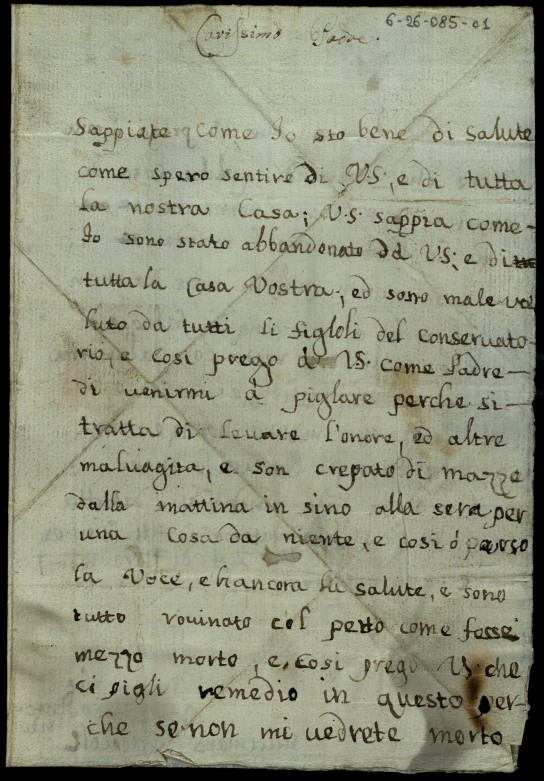 6-26-085-01
Carissimo Padre.
Sappiate come Io sto bene di salute
come spero sentire di V.S., e di tutta
la nostra Casa; V.S. sappia come-
Io sono stato abbandonato dd VS; e di
tutta la Casa Vostra, ed sono male vo
luto da tutti li figloli del conservato-
rio, e cosi prego d VS. come Padre-
di venirmi à piglare perche si-
tratta di levare l'onore, ed altre
malvagita, e son crepato di mazze
dalla mattina in sino alla sera per
una cosa da niente, e cosi ó perso
la voce, e hancora la salute, e sono
tutto rovinato col petto come fosse
mezzo morto, e, cosi prego VS. che
ci pigli remedio in questo per-
che se non mi vedrete morto